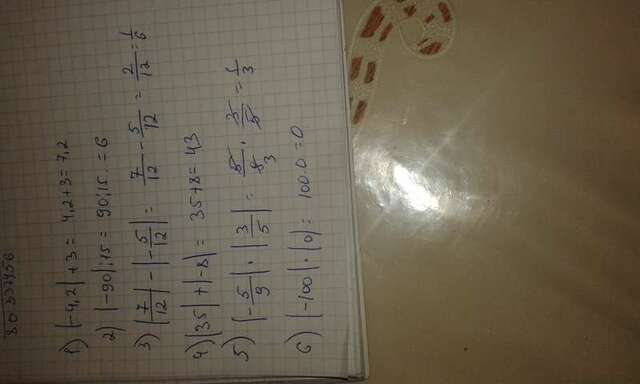 80 337456
1) |-4,2| + 3 = 4,2 + 3 = 7,2
2) |-90| : 15 = 90 : 15 = 6
3) |7/12| - |-5/12| = 7/12 - 5/12 = 2/12 = 1/6
4) |35| + |-8| = 35 + 8 = 43
5) |-5/9| · |3/5| = 5/9 · 3/5 = 1/3
6) |-100| · |0| = 100·0 = 0